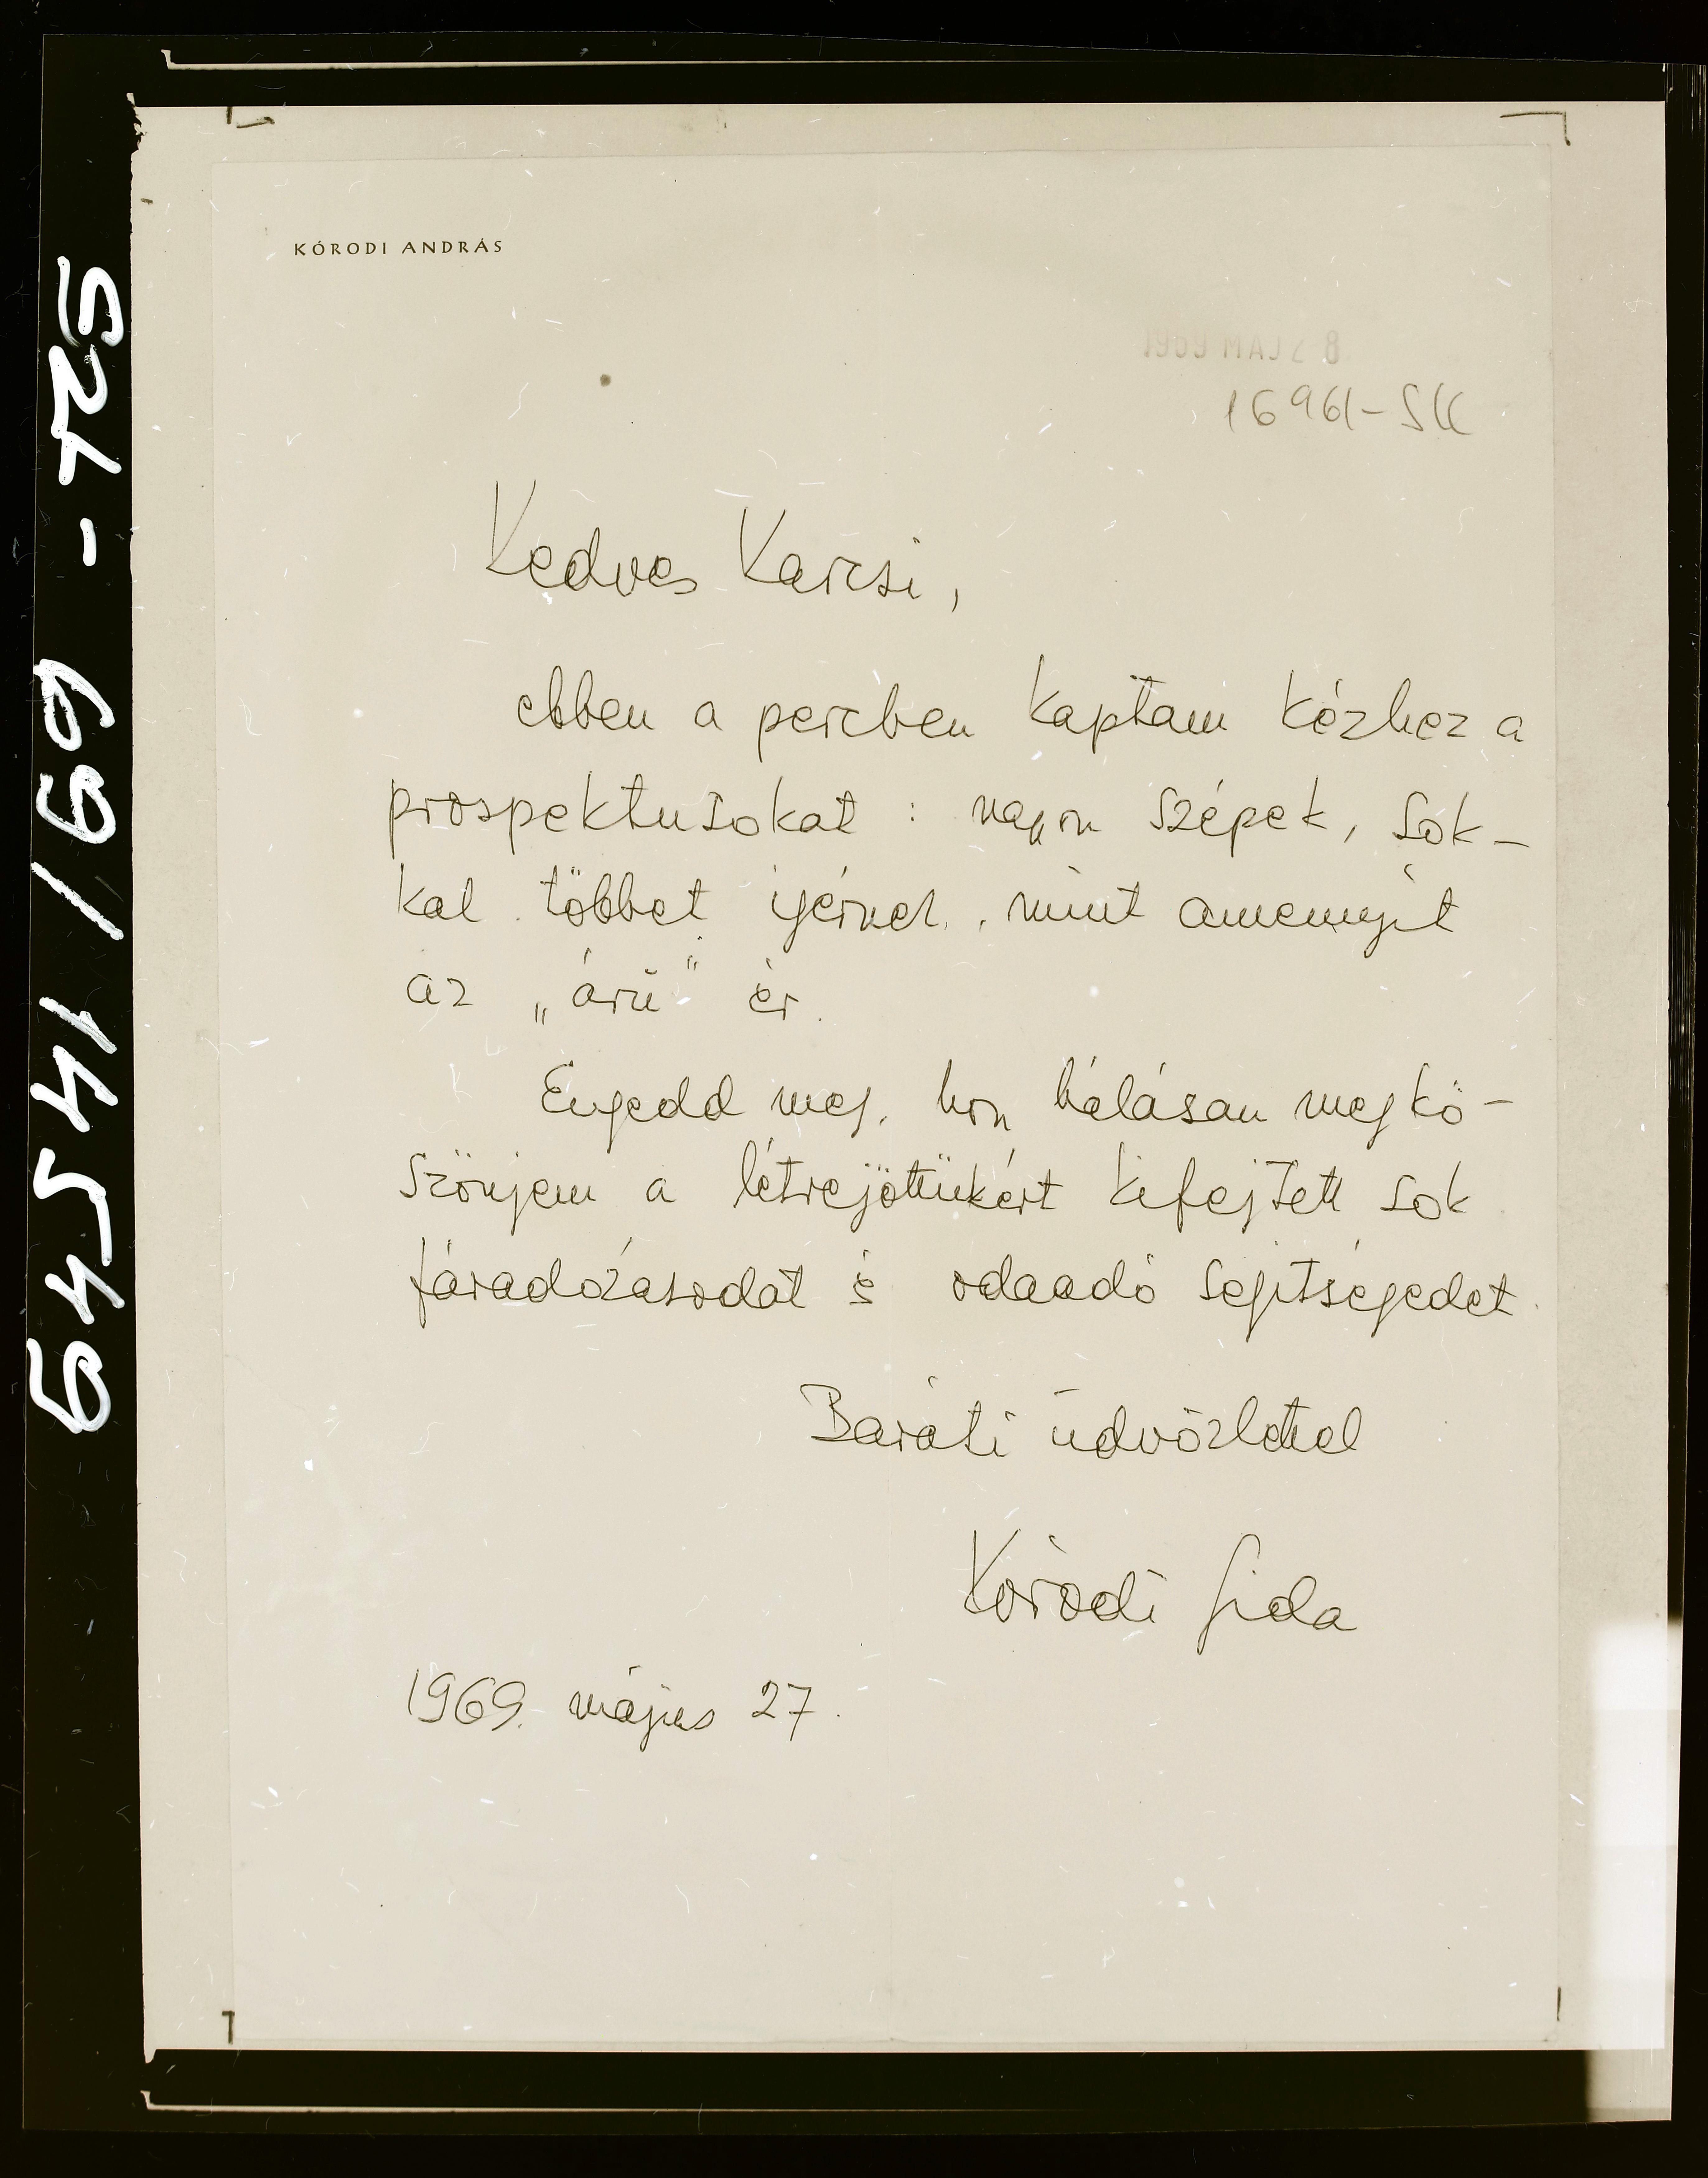 KÓRODI ANDRÁS
1969 MAJ 28
16961-SK
Kedves Karcsi,
ebben a percben kaptam kézhez a
prospektusokat : nagyon szépek, sok-
kal többet igérnek, mint amennyit
az „árú" ér.
Engedd meg, hogy hálásan megkö-
szönjem a létrejöttükért kifejtett sok
fáradozásodat és odaadó segitségedet.
Baráti üdvözlettel
Kórodi
1969. május 27.
64541/69 -